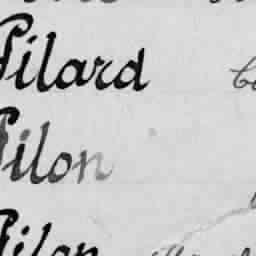 Pilard
Pilon
Pilon